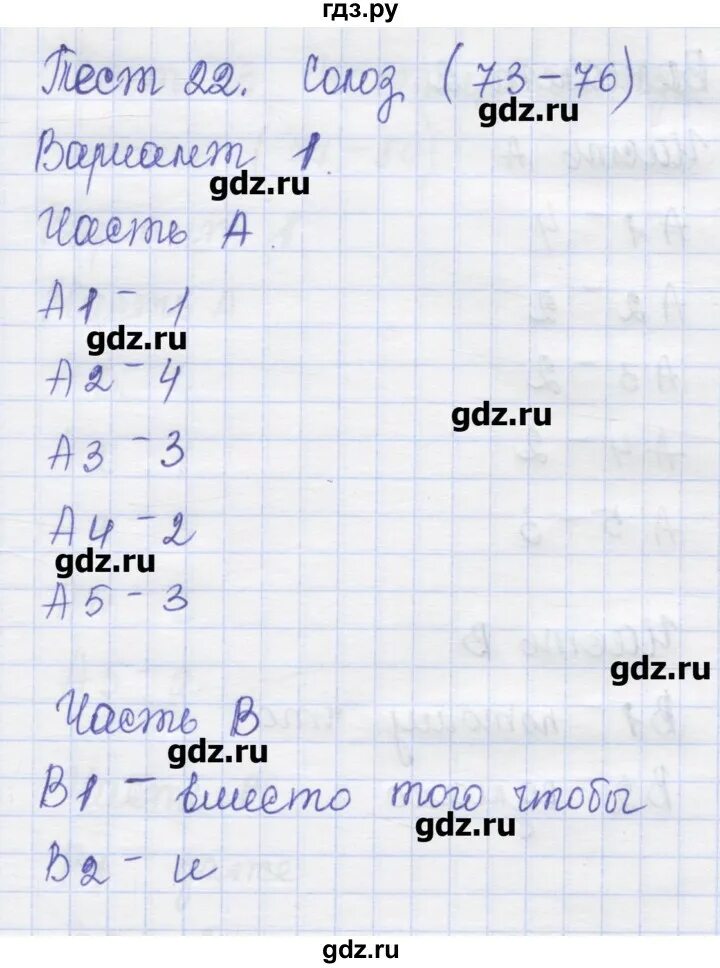 гдз.ру
Тест 22. Союз (73-76)
gdz.ru
Вариант 1.
gdz.ru
Часть А.
А1 - 1
gdz.ru
А2 - 4
gdz.ru
А3 - 3
А4 - 2
gdz.ru
А5 - 3
gdz.ru
Часть В
gdz.ru
В1 - вместо того чтобы
gdz.ru
В2 - и
gdz.ru